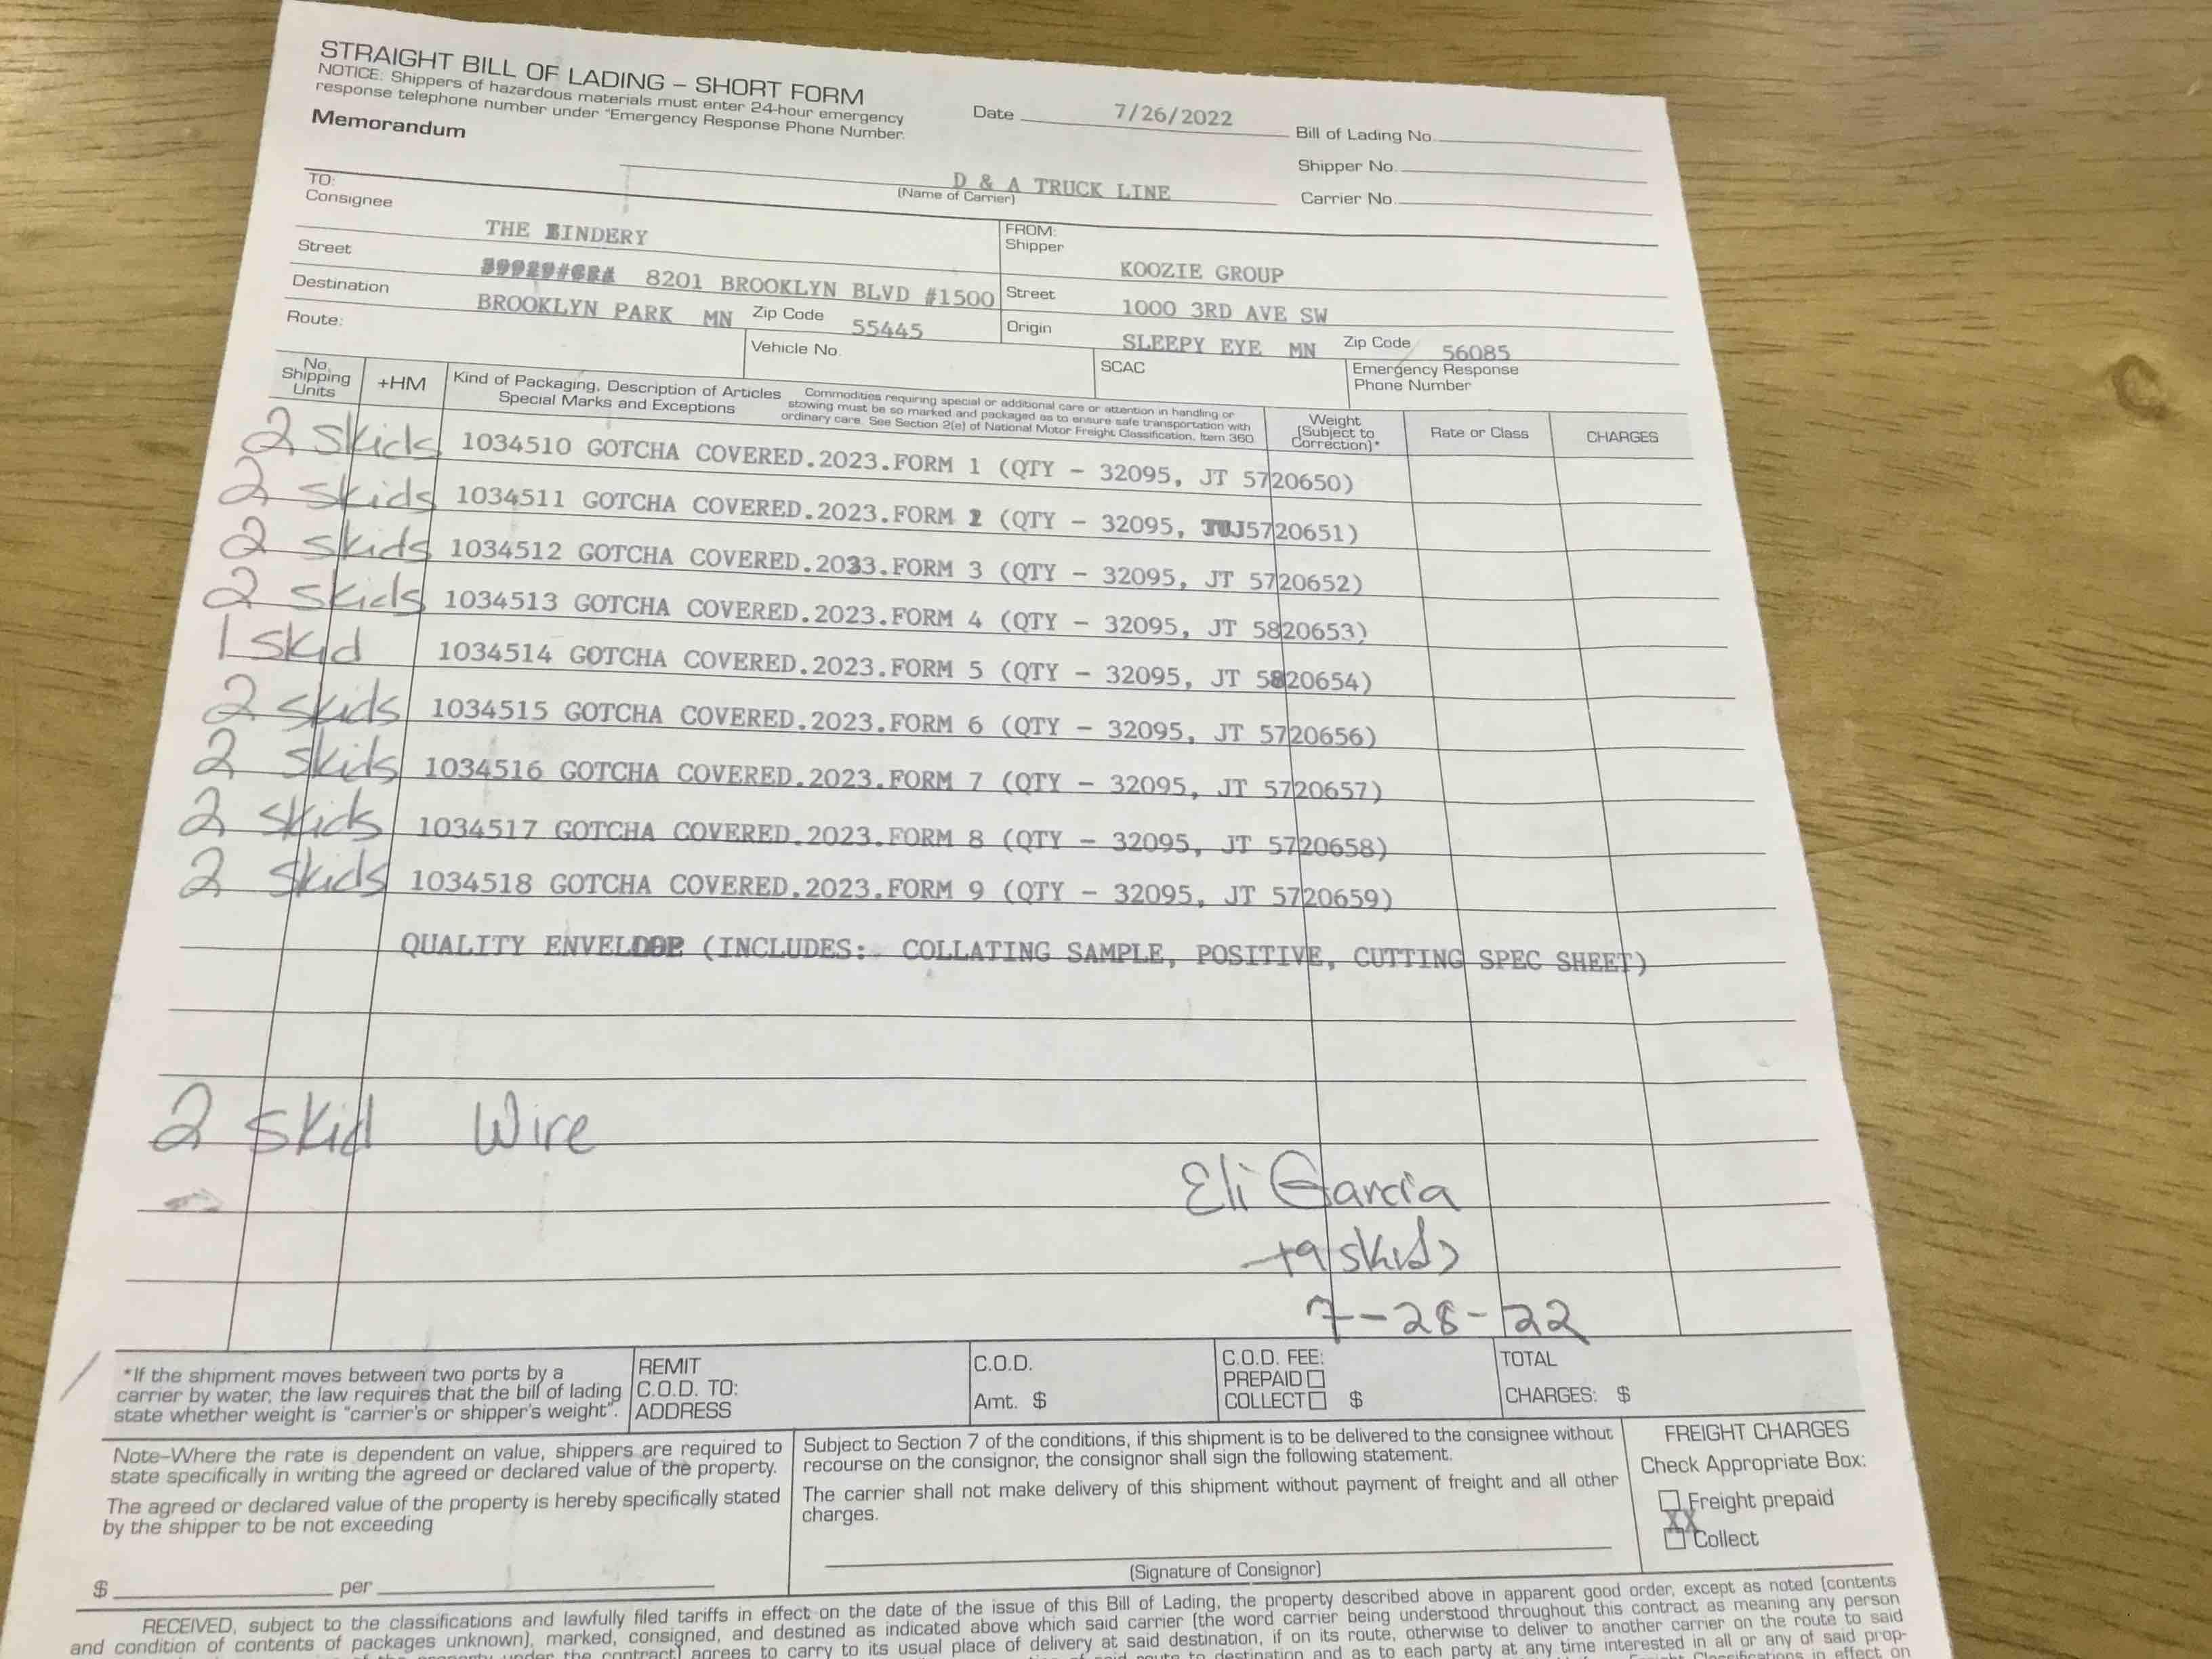 STRAIGHT BILL OF LADING – SHORT FORM
NOTICE: Shippers of hazardous materials must enter 24-hour emergency
response telephone number under "Emergency Response Phone Number.
Memorandum
Date 7/26/2022
Bill of Lading No.
Shipper No.
Carrier No.
D & A TRUCK LINE
(Name of Carrier)
TO:
Consignee
THE BINDERY
Street
8201 BROOKLYN BLVD #1500
Destination
BROOKLYN PARK MN Zip Code 55445
FROM:
Shipper
KOOZIE GROUP
Street
1000 3RD AVE SW
Origin
SLEEPY EYE MN Zip Code 56085
Route:
Vehicle No.
SCAC
Emergency Response
Phone Number
No.
Shipping
Units
+HM
Kind of Packaging, Description of Articles
Special Marks and Exceptions
Commodities requiring special or additional care or attention in handling or
stowing must be so marked and packaged as to ensure safe transportation with
ordinary care. See Section 2(e) of National Motor Freight Classification, Item 360
Weight
(Subject to
Correction)*
Rate or Class
CHARGES
2 skids 1034510 GOTCHA COVERED.2023.FORM 1 (QTY - 32095, JT 5720650)
2 skids 1034511 GOTCHA COVERED.2023.FORM 2 (QTY - 32095, 5720651)
2 skids 1034512 GOTCHA COVERED.2023.FORM 3 (QTY - 32095, JT 5720652)
2 skids 1034513 GOTCHA COVERED.2023.FORM 4 (QTY - 32095, JT 5820653)
1 skid 1034514 GOTCHA COVERED.2023.FORM 5 (QTY - 32095, JT 5820654)
2 skids 1034515 GOTCHA COVERED.2023.FORM 6 (QTY - 32095, JT 5720656)
2 skids 1034516 GOTCHA COVERED.2023.FORM 7 (QTY - 32095, JT 5720657)
2 skids 1034517 GOTCHA COVERED.2023.FORM 8 (QTY - 32095, JT 5720658)
2 skids 1034518 GOTCHA COVERED.2023.FORM 9 (QTY - 32095, JT 5720659)
QUALITY (INCLUDES: COLLATING SAMPLE, POSITIVE, CUTTING SPEC SHEET)
2 skid Wire
Eli Garcia
skids
7-28-22
*If the shipment moves between two ports by a
carrier by water, the law requires that the bill of lading
state whether weight is "carrier's or shipper's weight".
REMIT
C.O.D. TO:
ADDRESS
C.O.D.
Amt. $
C.O.D. FEE:
PREPAID
COLLECT $
TOTAL
CHARGES: $
Note–Where the rate is dependent on value, shippers are required to
state specifically in writing the agreed or declared value of the property.
The agreed or declared value of the property is hereby specifically stated
by the shipper to be not exceeding
$ per
Subject to Section 7 of the conditions, if this shipment is to be delivered to the consignee without
recourse on the consignor, the consignor shall sign the following statement.
The carrier shall not make delivery of this shipment without payment of freight and all other
charges.
(Signature of Consignor)
FREIGHT CHARGES
Check Appropriate Box:
Freight prepaid
XX
Collect
RECEIVED, subject to the classifications and lawfully filed tariffs in effect on the date of the issue of this Bill of Lading, the property described above in apparent good order, except as noted (contents
and condition of contents of packages unknown), marked, consigned, and destined as indicated above which said carrier (the word carrier being understood throughout this contract as meaning any person
agrees to carry to its usual place of delivery at said destination, if on its route, otherwise to deliver to another carrier on the route to said
and as to each party at any time interested in all or any of said prop-